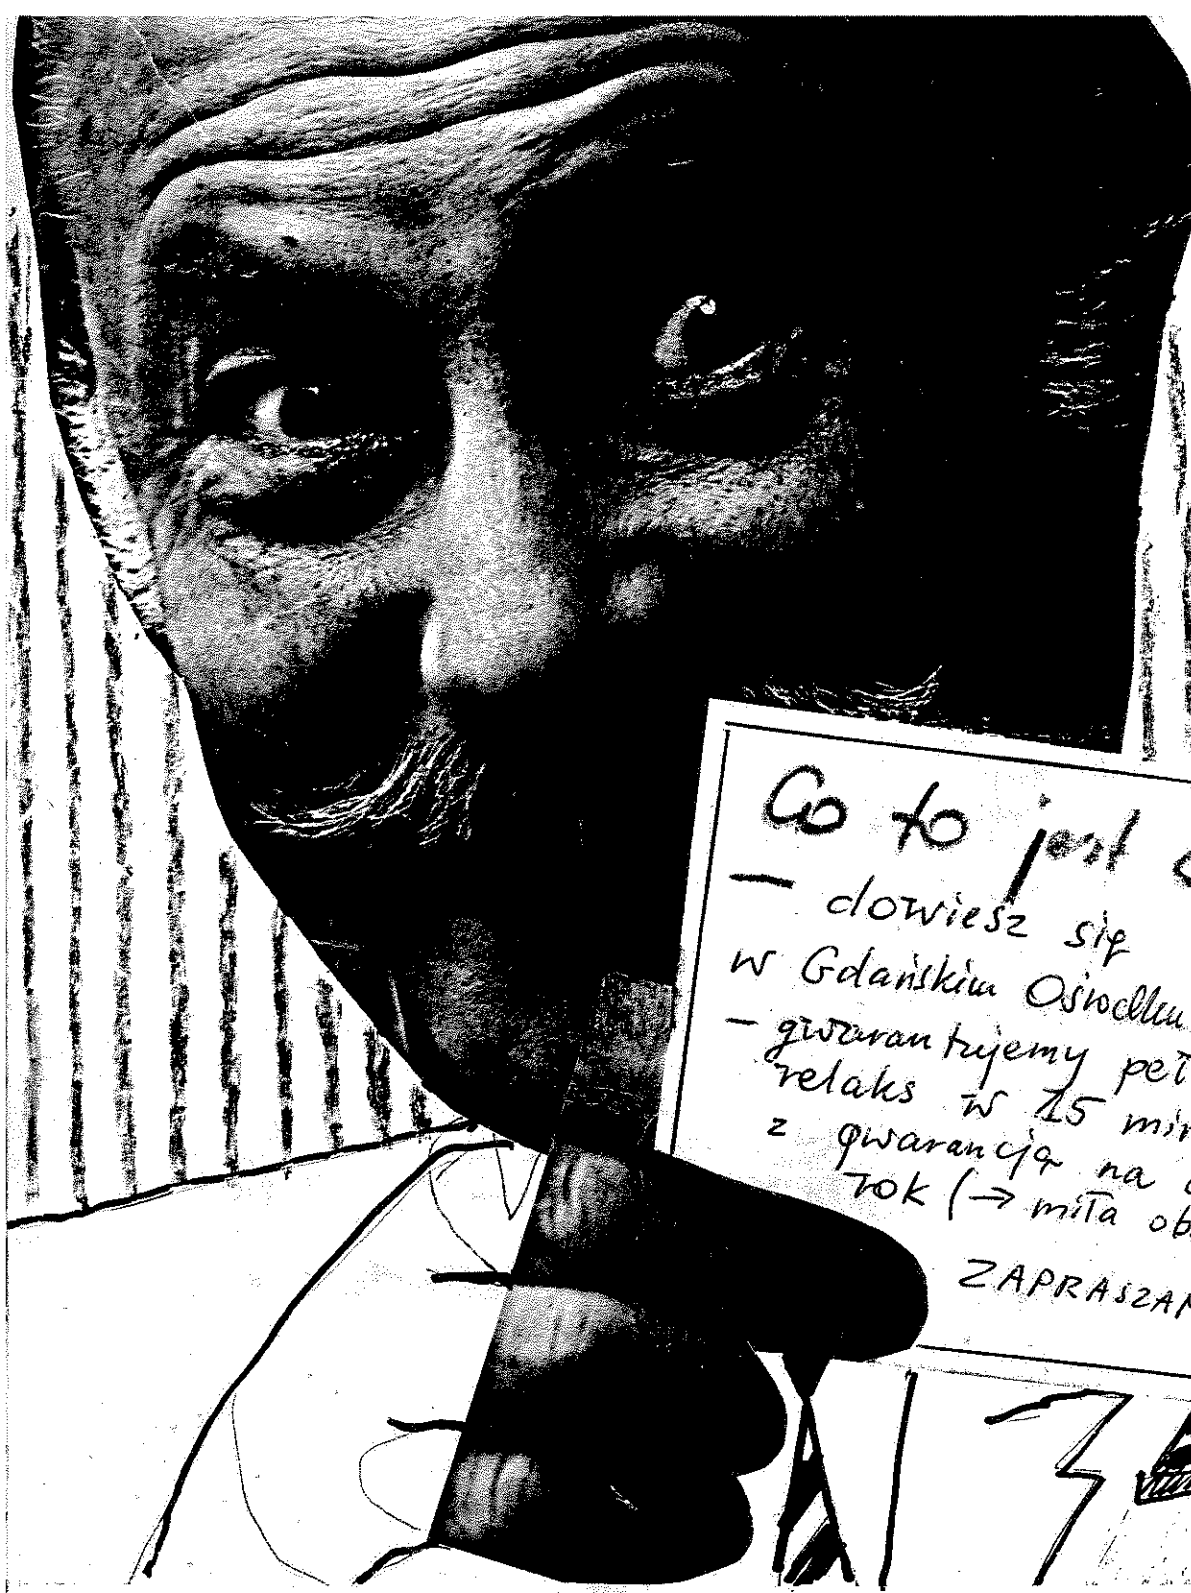 Co to jest
— dowiesz się
w Gdańskim Ośrodku
— gwarantujemy peł
relaks w 15 min
z gwarancją na
rok (→ miła ob
ZAPRASZAM